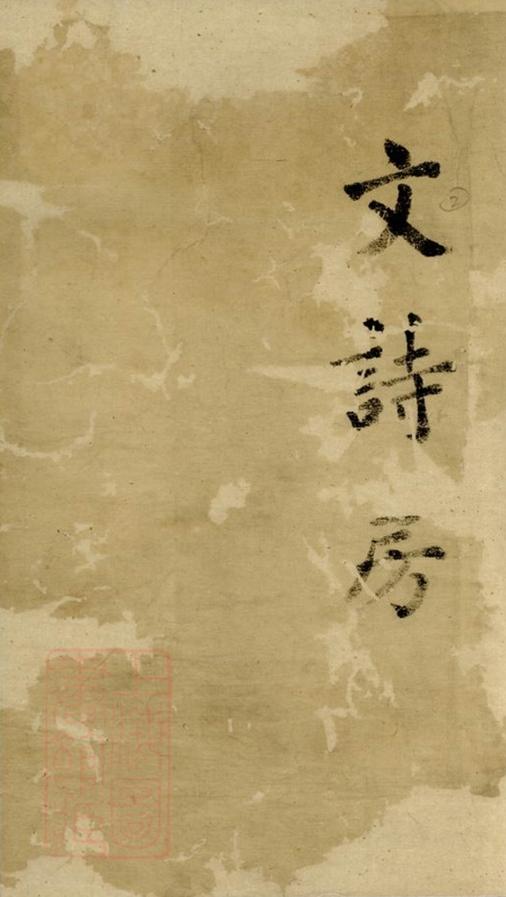 文詩房
②